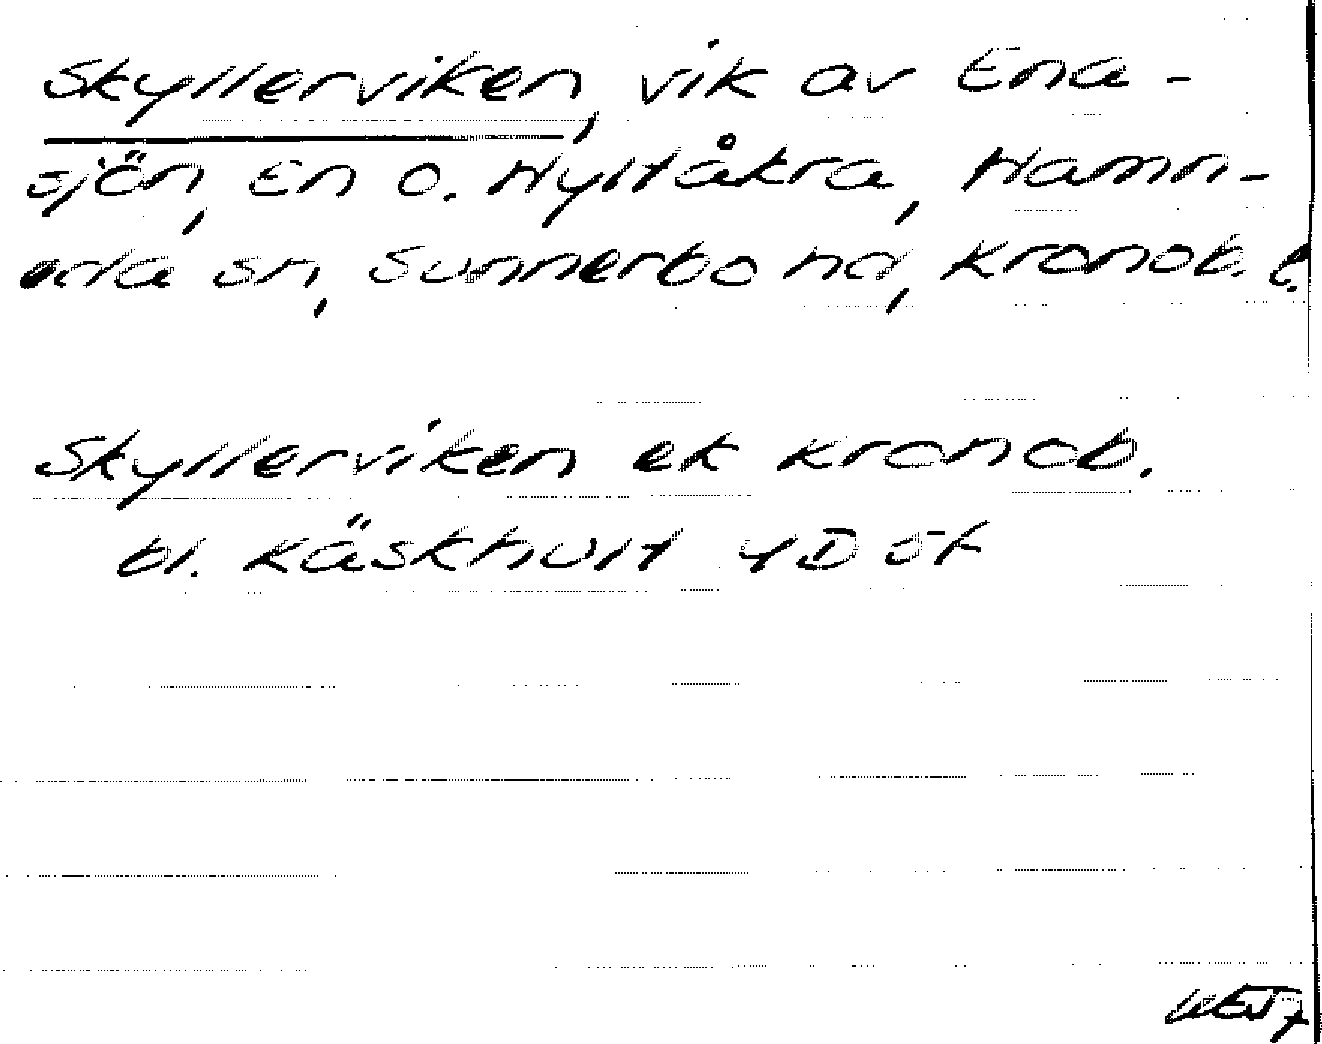 Skyllerviken, vik av Ena-
sjön, En o. Hyltåkra, Hamn-
eda sn, Sunnerbo hd, Kronob. l.
Skyllerviken ek Kronob.
bl. Käskhult 4D öf